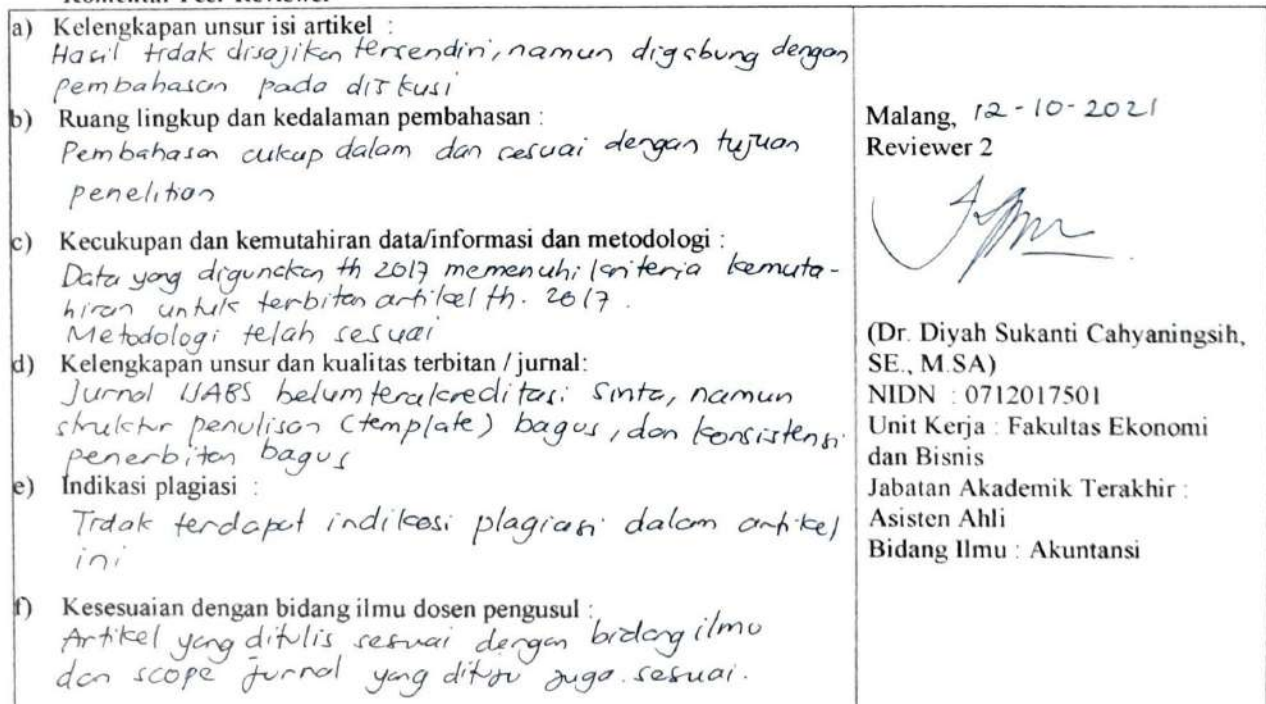 a) Kelengkapan unsur isi artikel :
Hasil tidak disajikan tersendiri, namun digabung dengan
pembahasan pada diskusi
b) Ruang lingkup dan kedalaman pembahasan :
Pembahasan cukup dalam dan sesuai dengan tujuan
penelitian
c) Kecukupan dan kemutahiran data/informasi dan metodologi :
Data yang digunakan th 2017 memenuhi kriteria kemuta-
hiran untuk terbitan artikel th. 2017.
Metodologi telah sesuai
d) Kelengkapan unsur dan kualitas terbitan / jurnal:
Jurnal IJABS belum terakreditasi sinta, namun
struktur penulisan (template) bagus, dan konsistensi
penerbitan bagus
e) Indikasi plagiasi :
Tidak terdapat indikasi plagiasi dalam artikel
ini
f) Kesesuaian dengan bidang ilmu dosen pengusul :
Artikel yang ditulis sesuai dengan bidang ilmu
dan scope jurnal yang dituju juga sesuai.
Malang, 12-10-2021
Reviewer 2
(Dr. Diyah Sukanti Cahyaningsih,
SE., M.SA)
NIDN : 0712017501
Unit Kerja : Fakultas Ekonomi
dan Bisnis
Jabatan Akademik Terakhir :
Asisten Ahli
Bidang Ilmu : Akuntansi